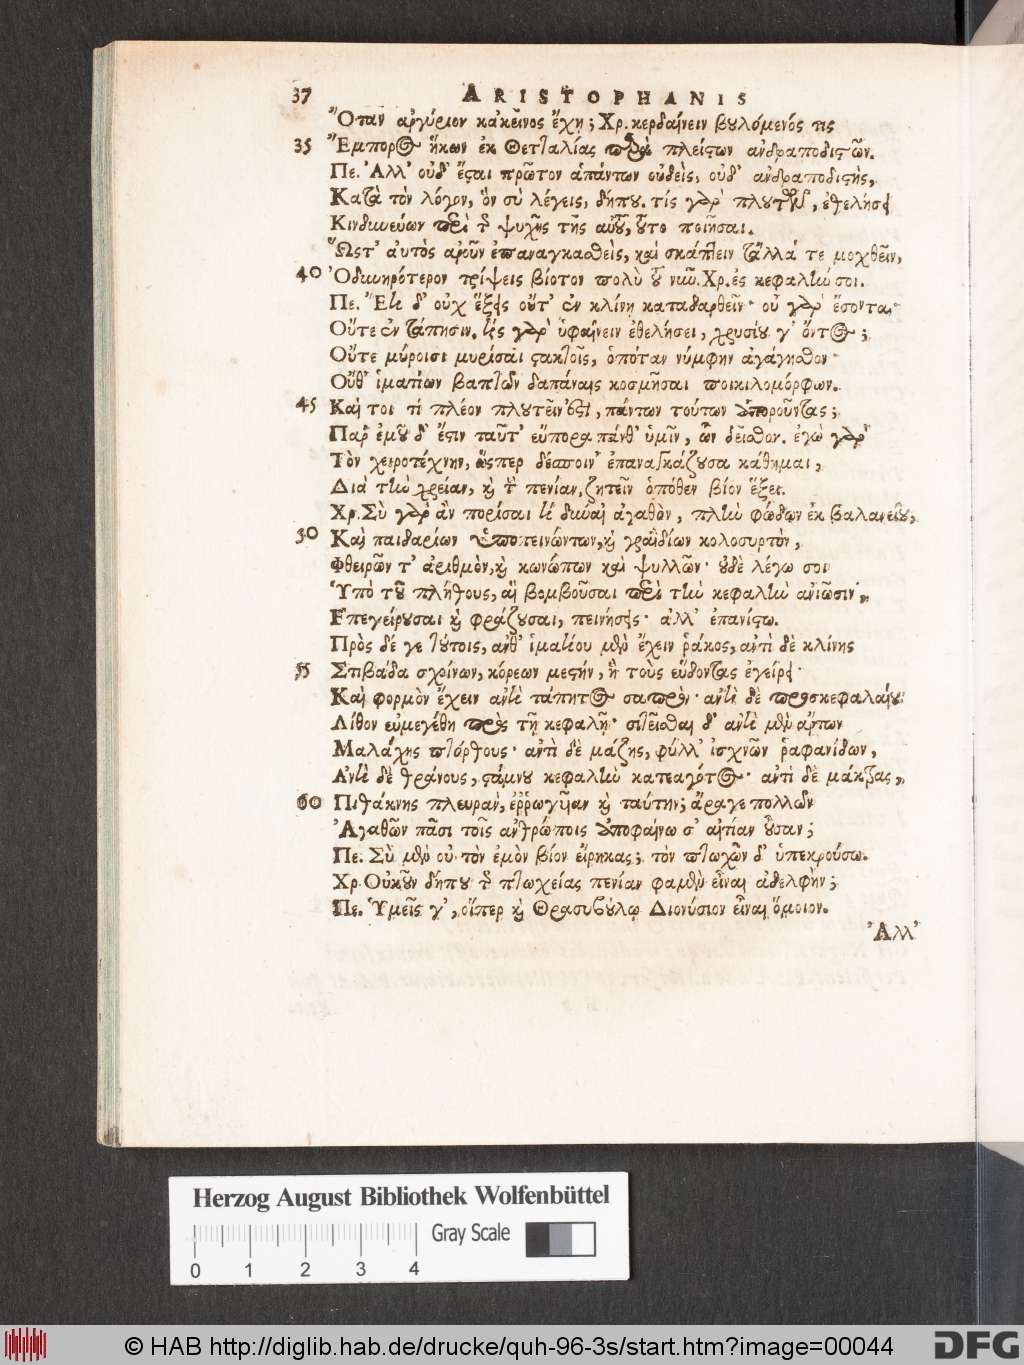 37 ARISTOPHANIS
Ὅταν ἀργύριον κἀκεῖνος ἔχῃ; Χρ. κερδαίνειν βουλόμενός τις
35 Ἔμπορος ἥκων ἐκ Θετταλίας παρὰ πλείστων ἀνδραποδιστῶν.
Πε. Ἀλλ' οὐδ' ἔσται πρῶτον ἁπάντων οὐδεὶς, οὐδ' ἀνδραποδιστὴς,
Κατὰ τὸν λόγον, ὃν σὺ λέγεις, δήπου. τίς γὰρ πλουτῶν, ἐθελήσει
Κινδυνεύων περὶ τῆς ψυχῆς τῆς αὑτοῦ, τοῦτο ποιῆσαι.
Ὥστ' αὐτὸς ἀροῦν ἐπαναγκασθεὶς, καὶ σκάπτειν τἄλλά τε μοχθεῖν,
40 Ὀδυνηρότερον τρίψεις βίοτον πολὺ τοῦ νῦν. Χρ. ἐς κεφαλὴν σοι.
Πε. Ἔτι δ' οὐχ ἕξεις οὔτ' ἐν κλίνῃ καταδαρθεῖν· οὐ γὰρ ἔσονται·
Οὔτε ἐν τάπησιν. τίς γὰρ ὑφαίνειν ἐθελήσει, χρυσίου γ' ὄντος;
Οὔτε μύροισι μυρίσαι στακτοῖς, ὁπόταν νύμφην ἀγάγησθον·
Οὔθ' ἱματίων βαπτῶν δαπάναις κοσμῆσαι ποικιλομόρφων.
45 Καί τοι τί πλέον πλουτεῖν ἐστι, πάντων τούτων ἀποροῦντας;
Παρ' ἐμοῦ δ' ἔστιν ταῦτ' εὔπορα πάνθ' ὑμῖν, ὧν δεῖσθον. ἐγὼ γὰρ
Τὸν χειροτέχνην, ὥσπερ δέσποιν' ἐπαναγκάζουσα κάθημαι,
Διὰ τὴν χρείαν, καὶ τὴν πενίαν, ζητεῖν ὁπόθεν βίον ἕξει.
Χρ. Σὺ γὰρ ἂν πορίσαι τί δύναι ἀγαθὸν, πλὴν φῴδων ἐκ βαλανείου,
50 Καὶ παιδαρίων ὑποπεινώντων, καὶ γραϊδίων κολοσυρτὸν,
Φθειρῶν τ' ἀριθμὸν, καὶ κωνώπων καὶ ψυλλῶν· οὐδὲ λέγω σοι
Ὑπὸ τοῦ πλήθους, αἳ βομβοῦσαι περὶ τὴν κεφαλὴν ἀνιῶσιν,
Ἐπεγείρουσαι καὶ φράζουσαι, πεινήσεις· ἀλλ' ἐπανίστω.
Πρὸς δέ γε τούτοις, ἀνθ' ἱματίου μὲν ἔχειν ῥάκος, ἀντὶ δὲ κλίνης
55 Στιβάδα σχοίνων, κόρεων μεστήν, ἣ τοὺς εὕδοντας ἐγείρει·
Καὶ φορμὸν ἔχειν ἀντὶ τάπητος σαπρὸν· ἀντὶ δὲ προσκεφαλαίου
Λίθον εὐμεγέθη πρὸς τῇ κεφαλῇ· σιτεῖσθαι δ' ἀντὶ μὲν ἄρτων
Μαλάχης πτόρθους· ἀντὶ δὲ μάζης, φύλλ' ἰσχνῶν ῥαφανίδων,
Ἀντὶ δὲ θράνους, στάμνου κεφαλὴν κατεαγότος· ἀντὶ δὲ μάκτρας,
60 Πιθάκνης πλευρὰν, ἐῤῥωγῖαν καὶ ταύτην; ἆραγε πολλῶν
Ἀγαθῶν πᾶσι τοῖς ἀνθρώποις ἀποφαίνω σ' αἰτίαν οὖσαν;
Πε. Σὺ μὲν οὐ τὸν ἐμὸν βίον εἴρηκας; τὸν πτωχῶν δ' ὑπεκρούσω.
Χρ. Οὐκοῦν δήπου τῆς πτωχείας πενίαν φαμὲν εἶναι ἀδελφὴν;
Πε. Ὑμεῖς γ', οἵπερ καὶ Θρασυβούλῳ Διονύσιον εἶναι ὅμοιον.
Ἀλλ'
Herzog August Bibliothek Wolfenbüttel
Gray Scale
0 1 2 3 4
© HAB http://diglib.hab.de/drucke/quh-96-3s/start.htm?image=00044 DFG